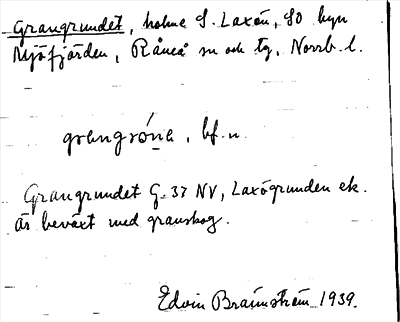 Grangrundet, holme S. Laxön, SO byn
Mjöfjärden, Råneå sn och tg, Norrb. l.
grangrón̲a, bf. n.
Grangrundet G. 37 NV, Laxögrunden ek.
är beväxt med granskog.
Edvin Brännström 1939.